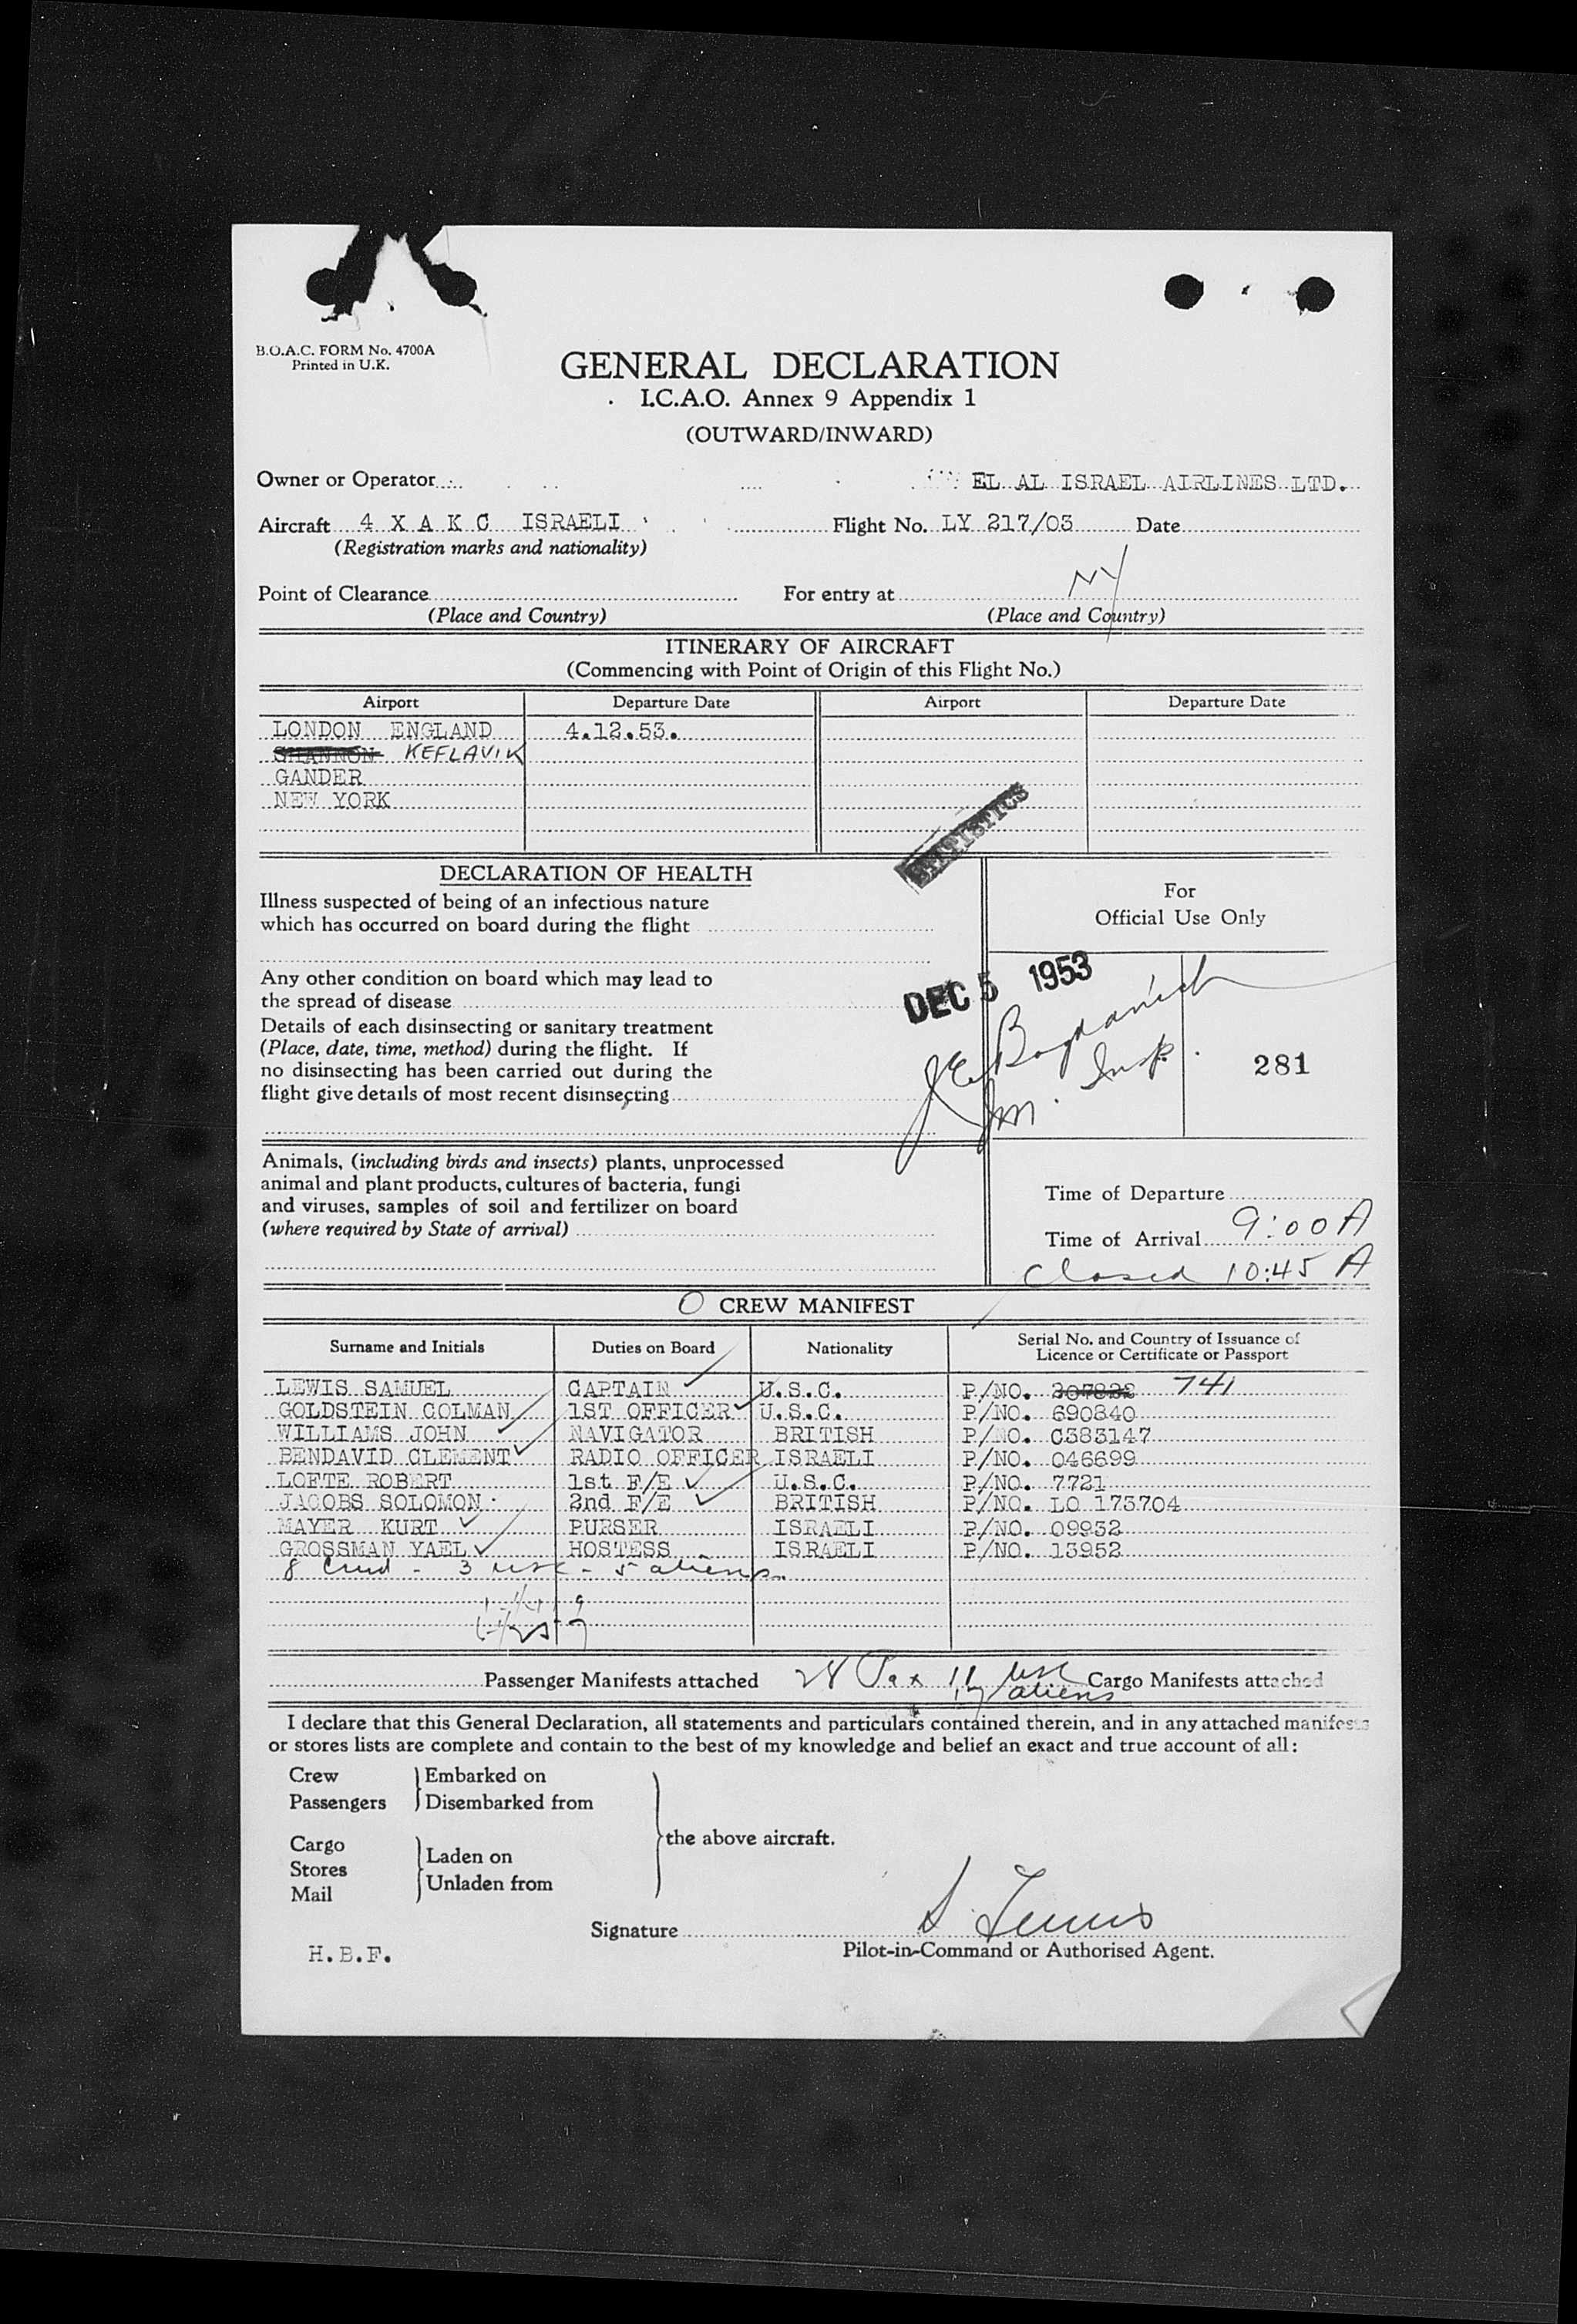 B.O.A.C. FORM No. 4700A
Printed in U.K.
GENERAL DECLARATION
I.C.A.O. Annex 9 Appendix 1
(OUTWARD/INWARD)
Owner or Operator EL AL ISRAEL AIRLINES LTD.
Aircraft 4 X A K C ISRAELI Flight No. LY 217/03 Date
(Registration marks and nationality)
Point of Clearance For entry at NY
(Place and Country) (Place and Country)
ITINERARY OF AIRCRAFT
(Commencing with Point of Origin of this Flight No.)
Airport Departure Date Airport Departure Date
LONDON ENGLAND 4.12.53.
SHANNON KEFLAVIK
GANDER
NEW YORK
STATISTICS
DECLARATION OF HEALTH
Illness suspected of being of an infectious nature
which has occurred on board during the flight
For
Official Use Only
Any other condition on board which may lead to
the spread of disease
DEC 5 1953
Details of each disinsecting or sanitary treatment
(Place, date, time, method) during the flight. If
no disinsecting has been carried out during the
flight give details of most recent disinsecting
Im. Insp.
281
Animals, (including birds and insects) plants, unprocessed
animal and plant products, cultures of bacteria, fungi
and viruses, samples of soil and fertilizer on board
(where required by State of arrival)
Time of Departure
Time of Arrival 9:00 A
Closed 10:45 A
CREW MANIFEST
Surname and Initials Duties on Board Nationality Serial No. and Country of Issuance of
Licence or Certificate or Passport
LEWIS SAMUEL CAPTAIN U.S.C. P/NO. 207832 741
GOLDSTEIN COLMAN 1ST OFFICER U.S.C. P/NO. 690840
WILLIAMS JOHN NAVIGATOR BRITISH P/NO. C383147
BENDAVID CLEMENT RADIO OFFICER ISRAELI P/NO. 046699
LOFTE ROBERT 1st F/E U.S.C. P/NO. 7721
JACOBS SOLOMON 2nd F/E BRITISH P/NO. LO 173704
MAYER KURT PURSER ISRAELI P/NO. 09952
GROSSMAN YAEL HOSTESS ISRAELI P/NO. 13952
8 Crew - 3 usc - 5 aliens
Passenger Manifests attached 28 Pax 11 usc Cargo Manifests attached
17 aliens
I declare that this General Declaration, all statements and particulars contained therein, and in any attached manifests
or stores lists are complete and contain to the best of my knowledge and belief an exact and true account of all:
Crew Embarked on
Passengers Disembarked from
the above aircraft.
Cargo
Stores Laden on
Mail Unladen from
Signature
H.B.F.
Pilot-in-Command or Authorised Agent.